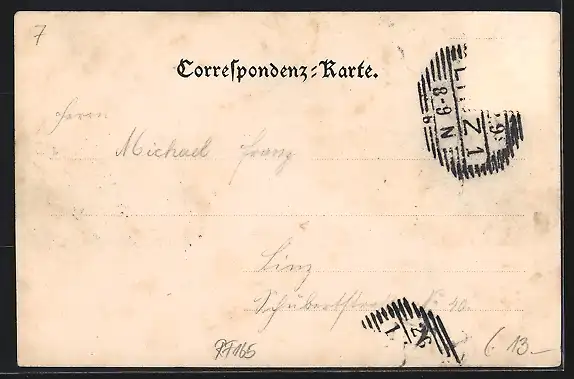 7
Correspondenz-Karte.
LINZ 1
8-9 N
9
Herrn
Michael Franz
Linz
Schubertstraße No 40.
1
26
PF165
13.-